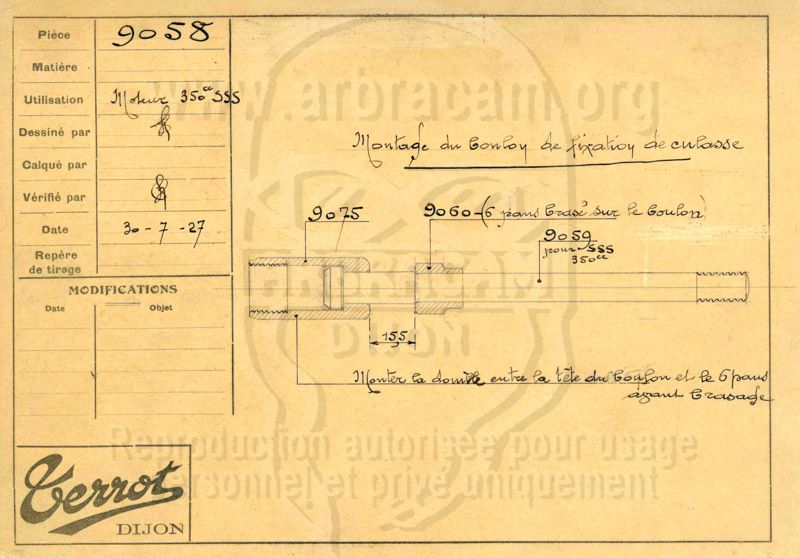 Pièce 9058
Matière
Utilisation Moteur 350cc SSS
Dessiné par
Calqué par
Vérifié par
Date 30-7-27
Repère
de tirage
MODIFICATIONS
Date Objet
www.arbracam.org
Montage du boulon de fixation de culasse
9075
9060-(6 pans brasé sur le boulon)
9059
pour SSS
350cc
ARBRACAM
DIJON
155
Monter la douille entre la tête du boulon et le 6 pans
avant brasage
Reproduction autorisée pour usage
personnel et privé uniquement
Terrot
DIJON